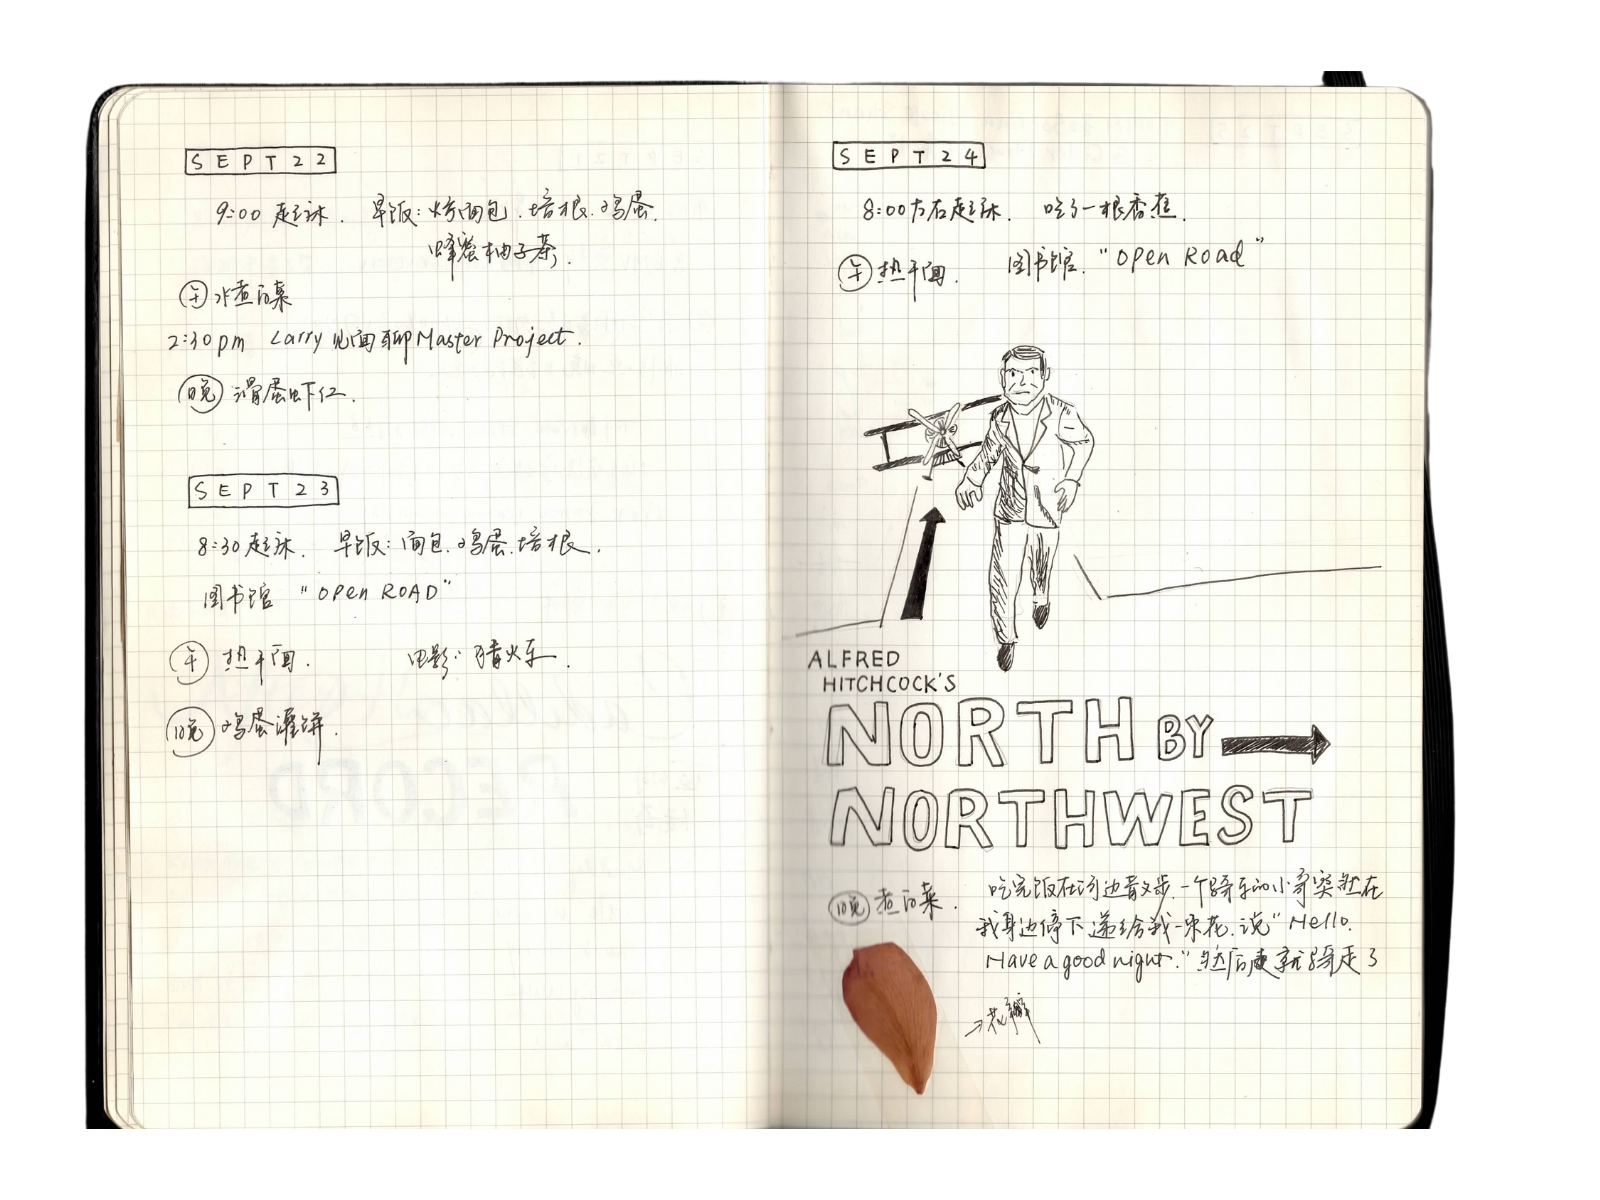 SEPT22
9:00 起床. 早饭: 烤面包. 培根. 鸡蛋.
蜂蜜柚子茶.
午 水煮白菜
2:30pm Larry 见面聊 Master Project.
晚 滑蛋虾仁.
SEPT23
8:30 起床. 早饭: 面包. 鸡蛋. 培根.
图书馆 "OPen ROAD"
午 热干面. 电影: 猜火车.
晚 鸡蛋灌饼.
SEPT24
8:00左右起床. 吃了一根香蕉.
午 热干面. 图书馆. "Open Road"
ALFRED
HITCHCOCK'S
NORTH BY
NORTHWEST
晚 煮白菜.
吃完饭在河边散步. 一个骑车的小哥突然在
我身边停下递给我一束花. 说 "Hello.
Have a good night." 然后就骑走了
→花瓣